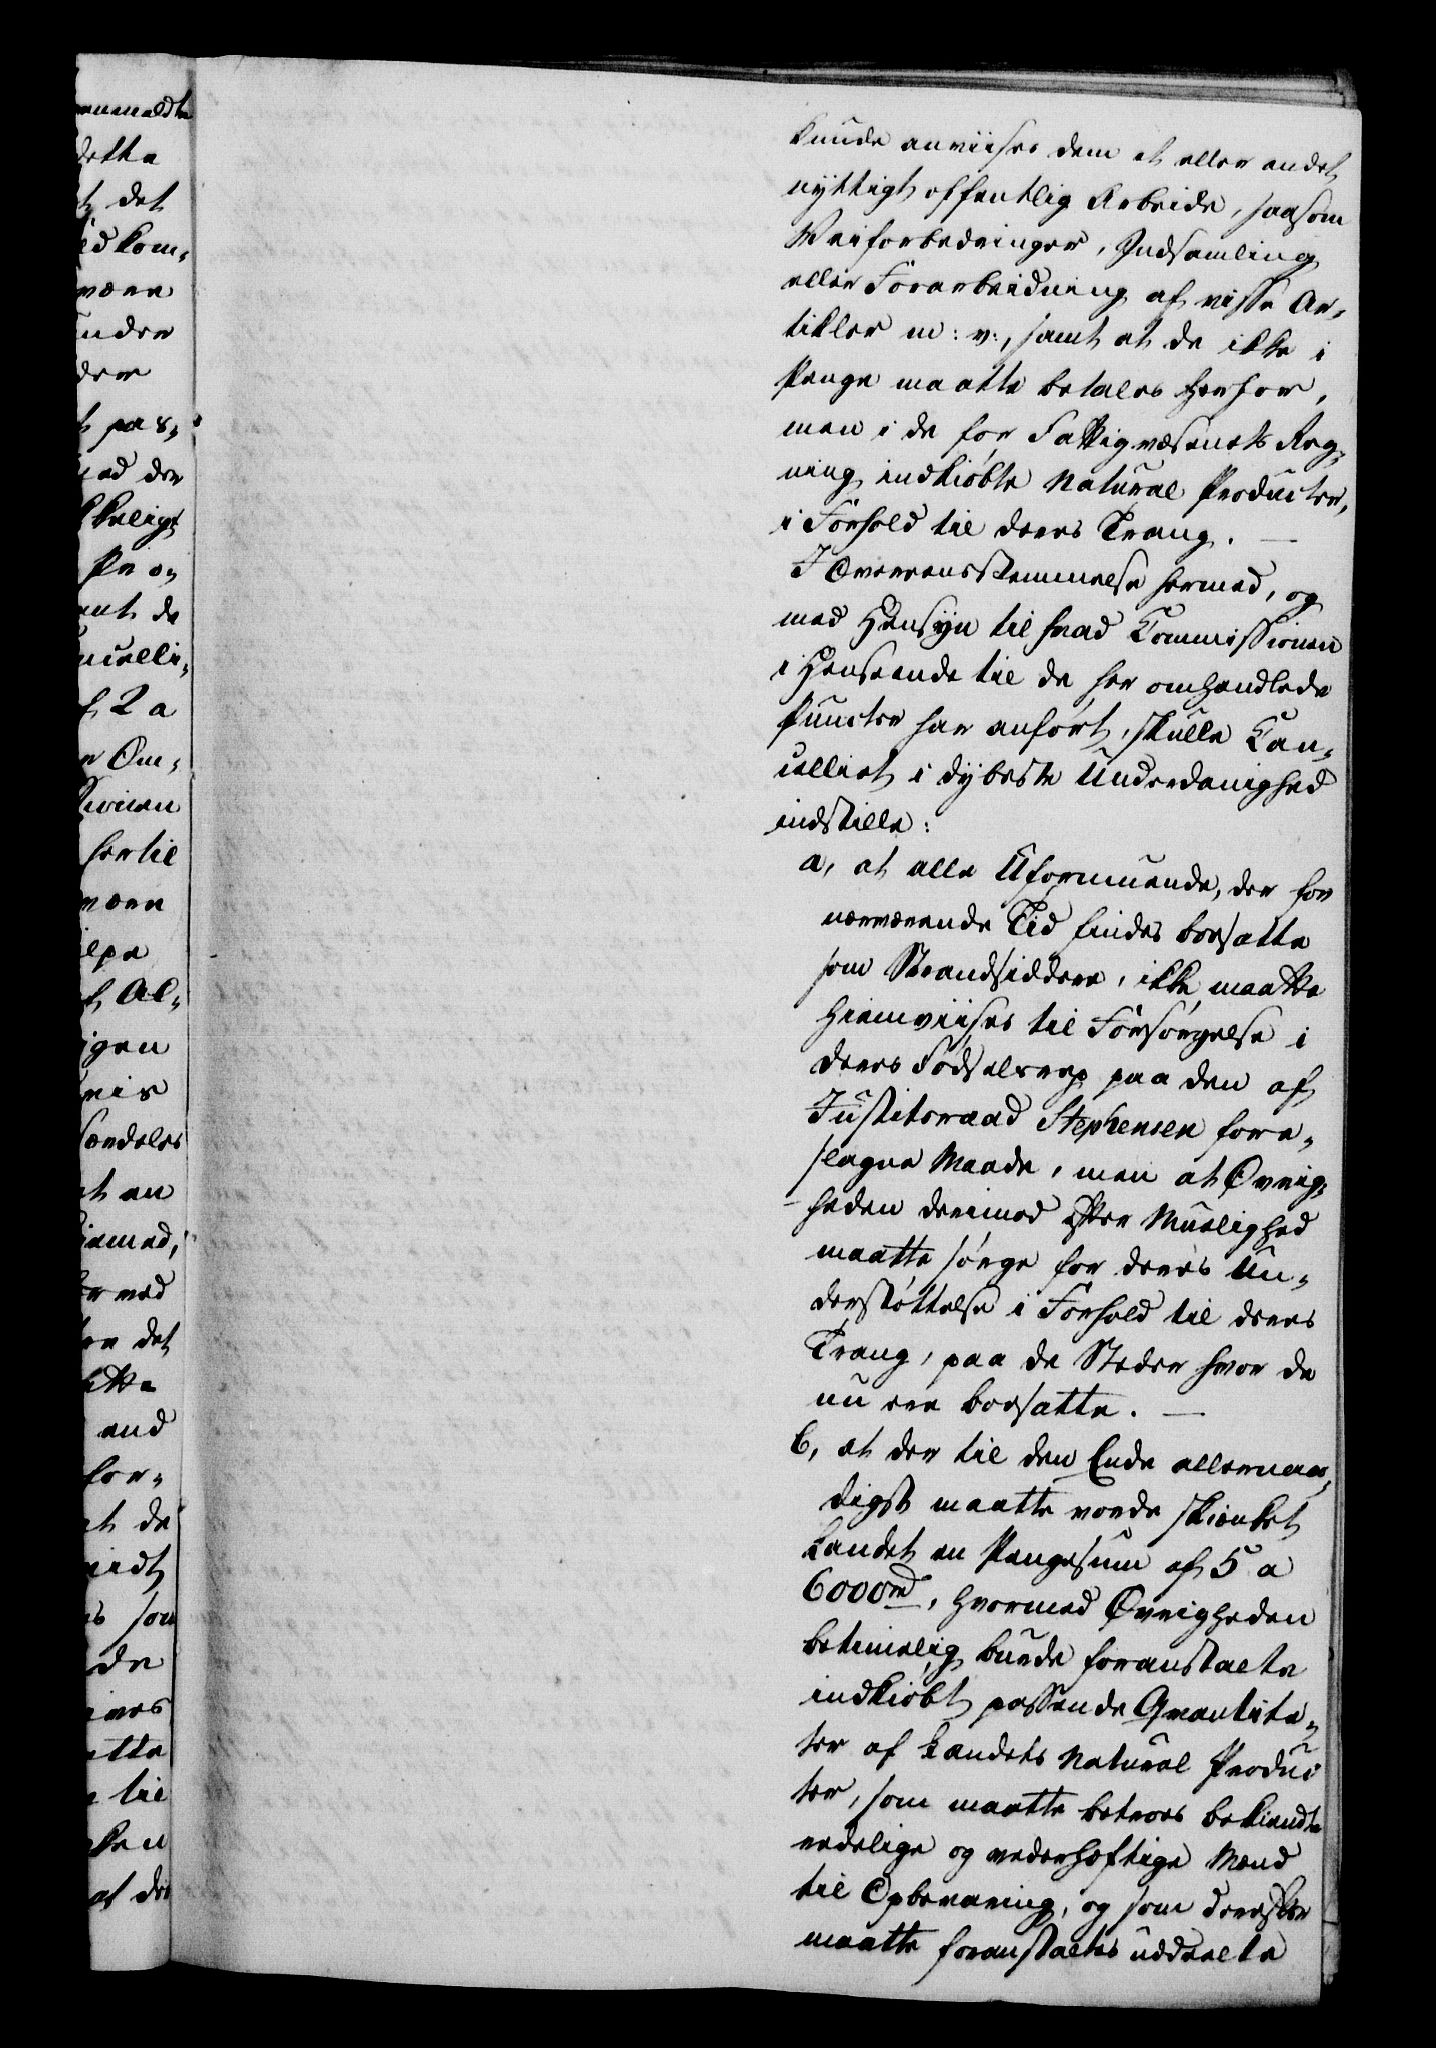 kunde anviises dem et eller andet
nyttigt offentlig Arbeide, saasom
Veiforbedringer, Indsamling
eller Forarbeidning af visse Ar-
tikler m: v:, samt at de ikke i
Penge maatte betales herfor,
men i de for Fattigvæsenets Reg-
ning indkiøbte Natural Producter,
i Forhold til deres Trang. —
I Overeensstemmelse hermed, og
med Hensyn til hvad Commissionen
i Henseende til de her omhandlede
Puncter har anført, skulle Can-
celliet i dybeste Underdanighed
indstille:
a, at alle Uformuende, der for
nærværende Tid findes boesatte
som Strandsiddere, ikke maatte
hiemviises til Forsørgelse i
deres Fødselsrep paa den af
Justitsraad Stephensen fore-
slagne Maade, men at Øvrig-
heden derimod efter Muelighed
maatte sørge for deres Un-
derstøttelse i Forhold til deres
Trang, paa de Steder hvor de
nu ere boesatte. —
b, at der til den Ende allernaa-
digst maatte vorde skienket
Landet en Pengesum af 5 a
6000 rd, hvormed Øvrigheden
betimelig burde foranstalte
indkiøbt passende Qvantite-
ter af Landets Natural Produc
ter, som maatte betroes bekiendte
redelige og vederhæftige Mænd
til Opbevaring, og som derefter
maatte foranstaltes uddeelte